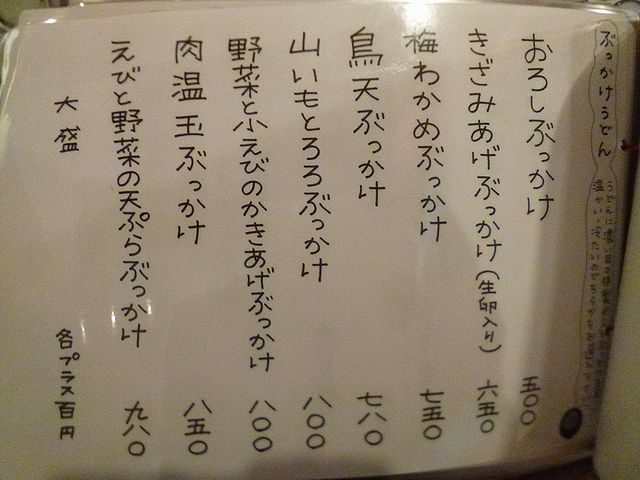 ぶっかけうどん
うどんに濃い目の
温かい、冷たいのどちらか
おろしぶっかけ 五〇〇
きざみあげぶっかけ(生卵入り) 六五〇
梅わかめぶっかけ 七五〇
鳥天ぶっかけ 七八〇
山いもとろろぶっかけ 八〇〇
野菜と小えびのかきあげぶっかけ 八〇〇
肉温玉ぶっかけ 八五〇
えびと野菜の天ぷらぶっかけ 九八〇
大盛 各プラス百円